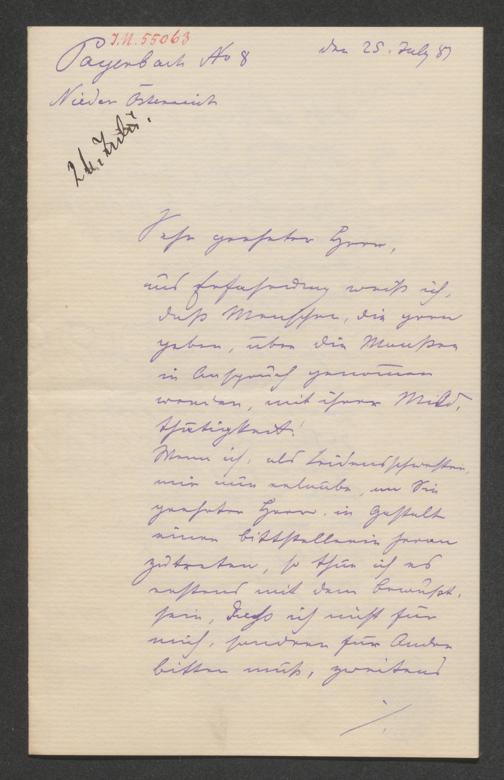 J.N. 55063
Payerbach No 8
den 25. July 87
Nieder Österreich
26. Juli.
Sehr geehrter Herr,
aus Erfahrung weiß ich,
daß Menschen, die gern
geben, über die Maaßen
in Anspruch genommen
werden, mit ihrer Mild-
thätigkeit!
Wenn ich, als Leidensschwester,
mir nun erlaube, an Sie
geehrter Herr, in Gestalt
einer Bittstellerin heran
zutreten, so thue ich es
erstens mit dem Bewußt-
sein, daß ich nicht für
mich, sondern für Andre
bitten muß, zweitens
./.